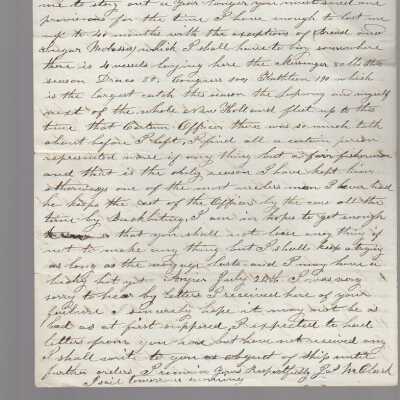 me to stay out a year longer you must send one
provisions for the time I have enough to last me
up to 40 months with the exceptions of Bread and
Sugar Molasses which I shall have to buy somewhere
there is 4 vessels laying here the
season Draco 50. Congress 800 190 which
is the largest catch this season the and myself
next of the whole New Holland fleet up to this
time that Certain Officer there was so much talk
about before I left, I find all a certain person
represented more if any thing but a fair fisherman
and that is the only reason I have kept him
otherways one of the most useless man I ever had
he keeps the rest of the Officers by the ears all the
time by Backbiting, I am in hopes to get enough
so that you shall not lose any thing if
not to make any thing but I shall keep a trying
as long as the voyage lasts and I may have a
lucky hit yet July 24th. I was very
sorry to hear by letters I received here of your
failure I sincerely hope it may not be as
bad as at first supposed, I expected to had
letters from you here but have not received any
I shall write to you as Agent of Ship until
further orders, I remain Yours Respectfully
I sail tomorrow